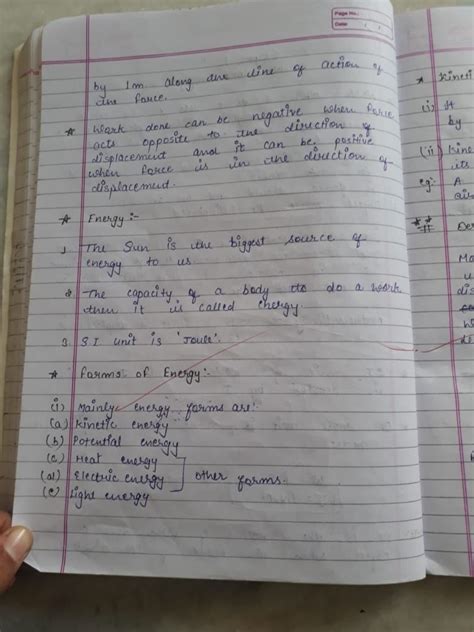 Page No.:
Date:
by 1m along the line of action of
the force.
* Work done can be negative when force
acts opposite to the direction of
displacement and it can be positive
when force is in the direction of
displacement.
* Energy :-
1. The Sun is the biggest source of
energy to us
2. The capacity of a body to do a work
then it is called energy.
3. S.I unit is 'Joule'.
* Forms of Energy:-
(i) Mainly energy forms are:
(a) Kinetic energy
(b) Potential energy
(c) Heat energy
(d) Electric energy
other forms.
(e) light energy
* Kineti
(i) It
by
(ii) Kine
its
eg: A
air